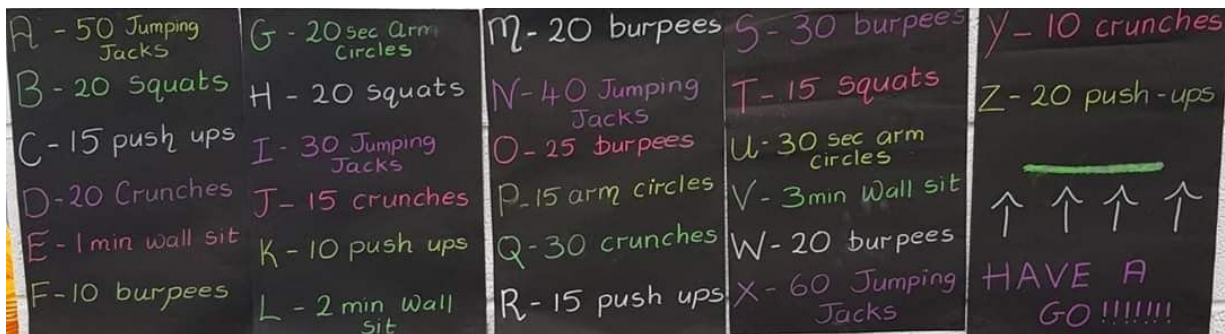 A - 50 Jumping
Jacks
B - 20 Squats
C - 15 push ups
D - 20 Crunches
E - 1 min wall sit
F - 10 burpees
G - 20 sec arm
Circles
H - 20 squats
I - 30 Jumping
Jacks
J - 15 crunches
K - 10 push ups
L - 2 min wall
sit
M - 20 burpees
N - 40 Jumping
Jacks
O - 25 burpees
P - 15 arm circles
Q - 30 crunches
R - 15 push ups
S - 30 burpees
T - 15 squats
U - 30 sec arm
circles
V - 3 min wall sit
W - 20 burpees
X - 60 Jumping
Jacks
Y - 10 crunches
Z - 20 push-ups
HAVE A
GO!!!!!!!